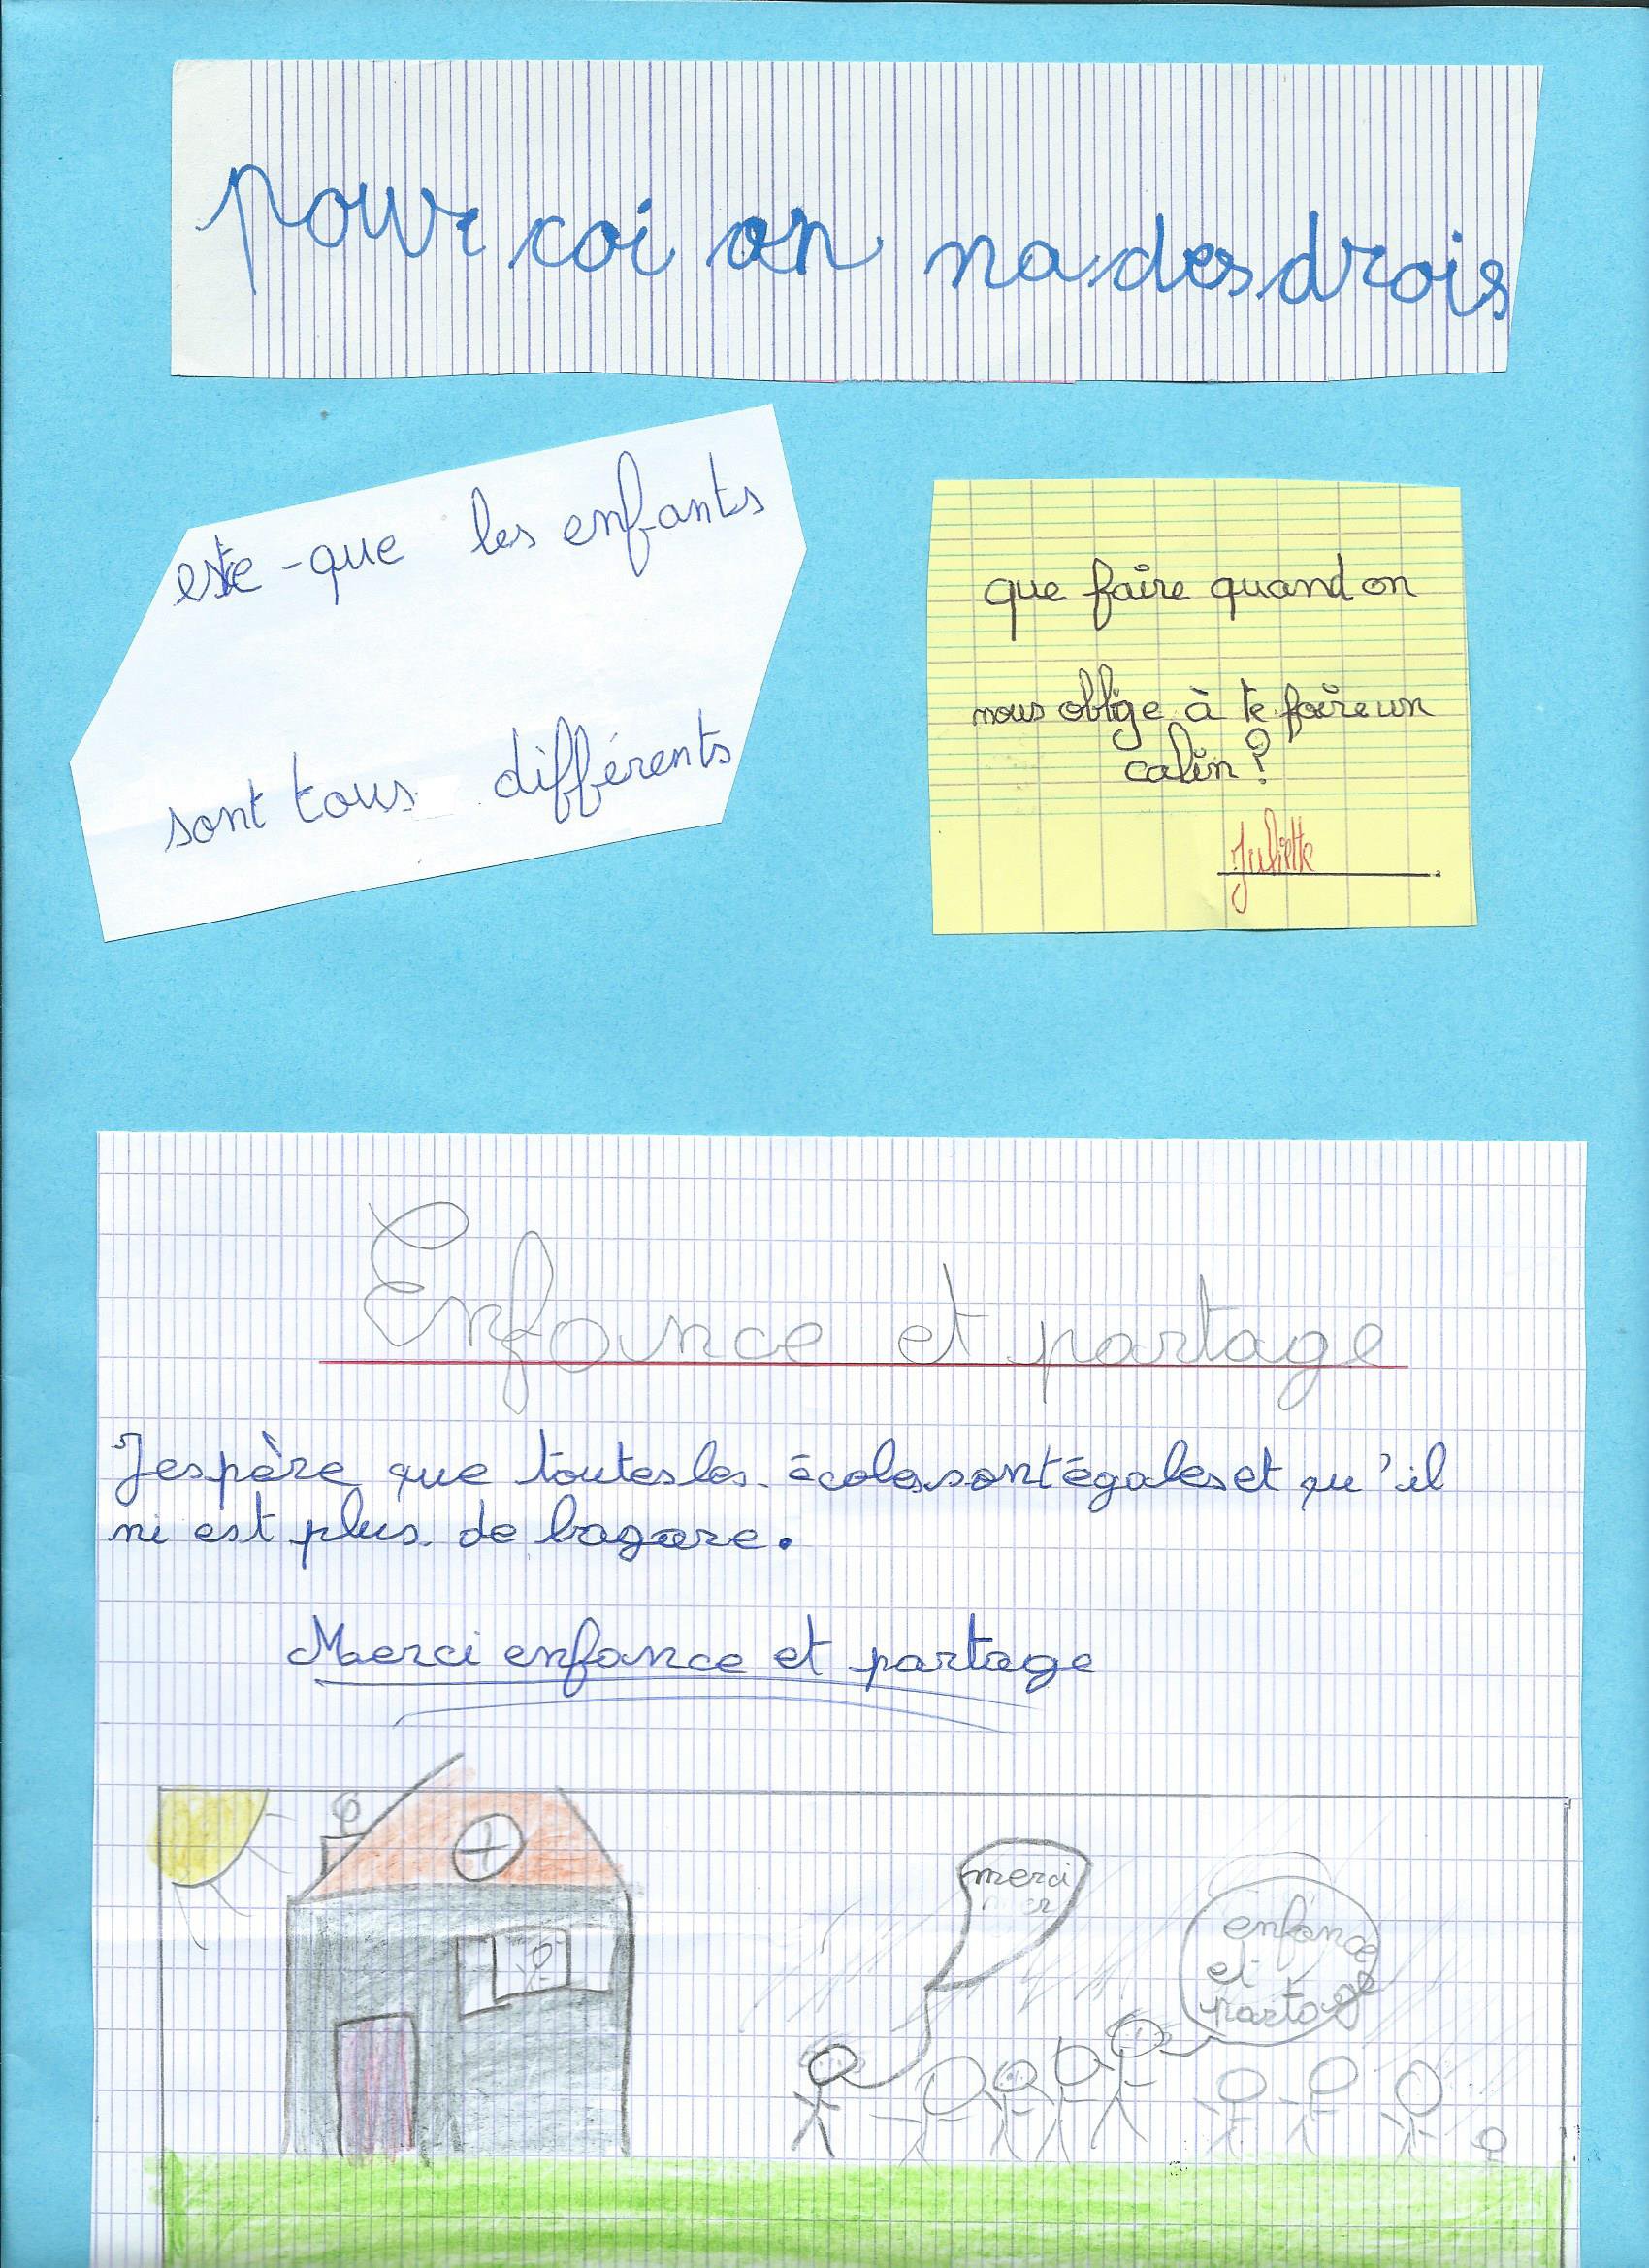 pour coi on na des drois
este-que les enfants
sont tous différents
que faire quand on
nous oblige à te faire un
calin ?
Juliette
Enfance et partage
J'espère que toutes les écoles sont égales et qu'il
ni est plus de bagare.
Merci enfance et partage
merci
enfance
et
partage